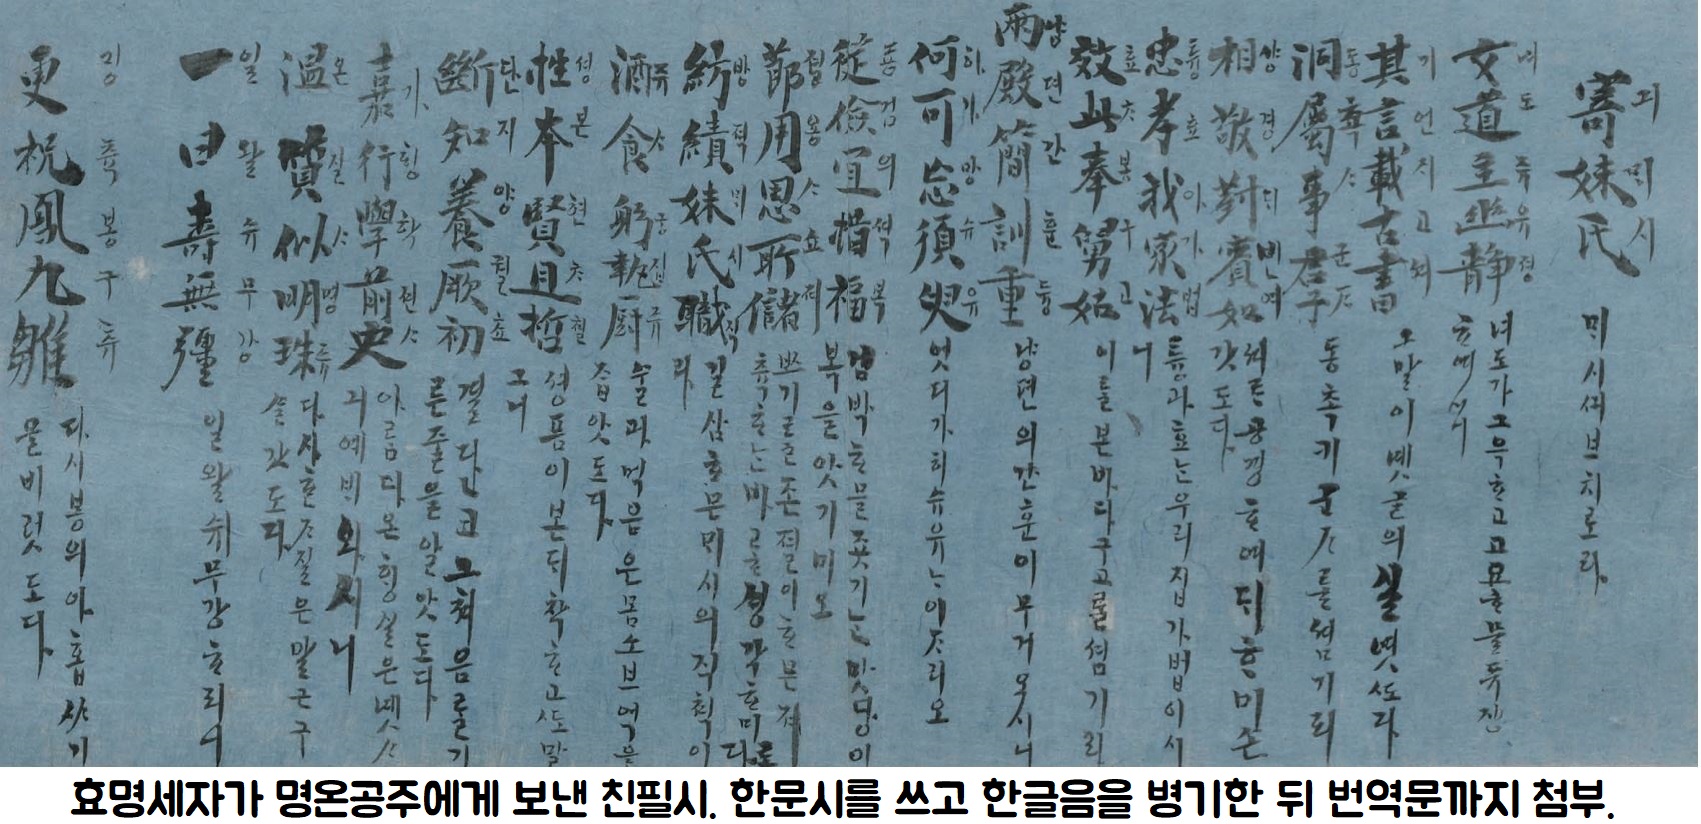 寄妹氏
긔ᄆᆡ시
ᄆᆡ시ᄭᅴ브치로라
女道主幽静
녀도쥬유졍
녀도가그윽ᄒᆞ고고요ᄒᆞᆷ을듀쟝
ᄒᆞ여시니
其言載古書
기언ᄌᆡ고셔
그말이녯글의실녓도다
洞屬事君子
동쵹ᄉᆞ군ᄌᆞ
동쵹기군ᄌᆞ를셤기되
相敬對賓如
샹경ᄃᆡ빈여
셔로공경ᄒᆞ여ᄃᆡᄒᆞᆷ미손
갓도다
忠孝我家法
튱효아가법
튱과효ᄂᆞᆫ우리집가법이시
니
效此奉舅姑
효ᄎᆞ봉구고
이를본바다구고를셤기라
兩殿簡訓重
냥뎐간훈듕
냥뎐의간훈이무거오시니
何可忘須臾
하가망슈유
엇디가히슈유ᄂᆞᆫ이ᄌᆞ리오
從儉宜惜福
죵검의셕복
검박ᄒᆞᆷ믈좃기ᄂᆞᆫ맛당이
복을앗기미오
節用思所儲
졀용ᄉᆞ쇼져
쓰기르존졀이ᄒᆞᆷ문져
츅ᄒᆞᄂᆞᆫ바를ᄉᆡᆼ각ᄒᆞ미로다
紡績妹氏職
방젹ᄆᆡ시직
길삼ᄒᆞᆷ문ᄆᆡ시의직ᄎᆡᆨ이
라
酒食躬執厨
쥬ᄉᆞ궁집쥬
술과먹음은몸소브억을
잡앗도다
性本賢且哲
셩본현ᄎᆞ쳘
셩품이본ᄃᆡ착ᄒᆞ고ᄯᅩ말
그니
斷知養厥初
단지양궐초
결단코그쳐음을기
른줄을알앗도다
嘉行學前史
가ᄒᆡᆼ학젼ᄉᆞ
아름다온ᄒᆡᆼ실은녯ᄉᆞ
긔예ᄇᆡ와시니
溫質似明珠
온질ᄉᆞ명쥬
다사ᄒᆞᆫᄌᆞ질은말근구
슬갓도다
一曰壽無彊
일왈슈무강
일왈쉬무강ᄒᆞ리니
更祝鳳九雛
깅츅봉구츄
다시봉의아홉ᄉᆞᆨ기
를비럿도다
효명세자가 명온공주에게 보낸 친필시. 한문시를 쓰고 한글음을 병기한 뒤 번역문까지 첨부.